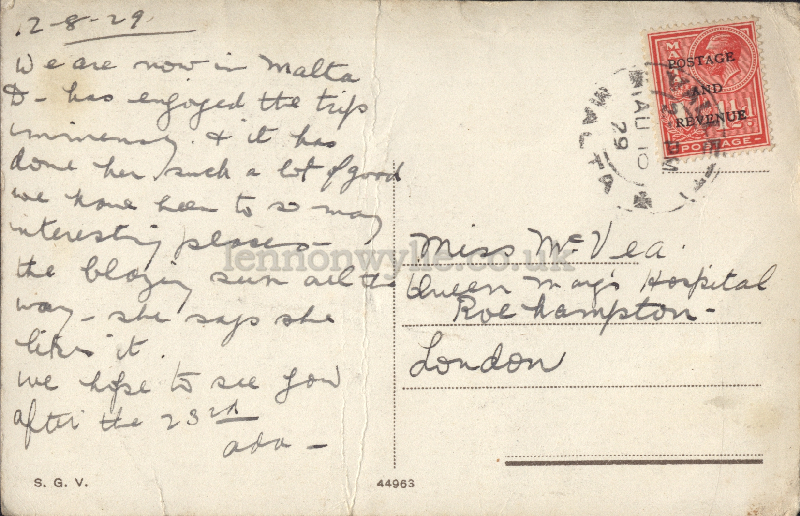 12-8-29
We are now in Malta
D- has enjoyed the trip
immensely & it has
done her such a lot of good
we have been to so many
interesting places -
the blazing sun all the
way - she says she
likes it.
we hope to see you
after the 23rd
Ada -
S. G. V.
44963
MALTA
POSTAGE
AND
REVENUE
POSTAGE
VALLETTA
PM
AU 10
29
MALTA
Miss McVea.
Queen Mary's Hospital
Roehampton -
London
lennonwylie.co.uk